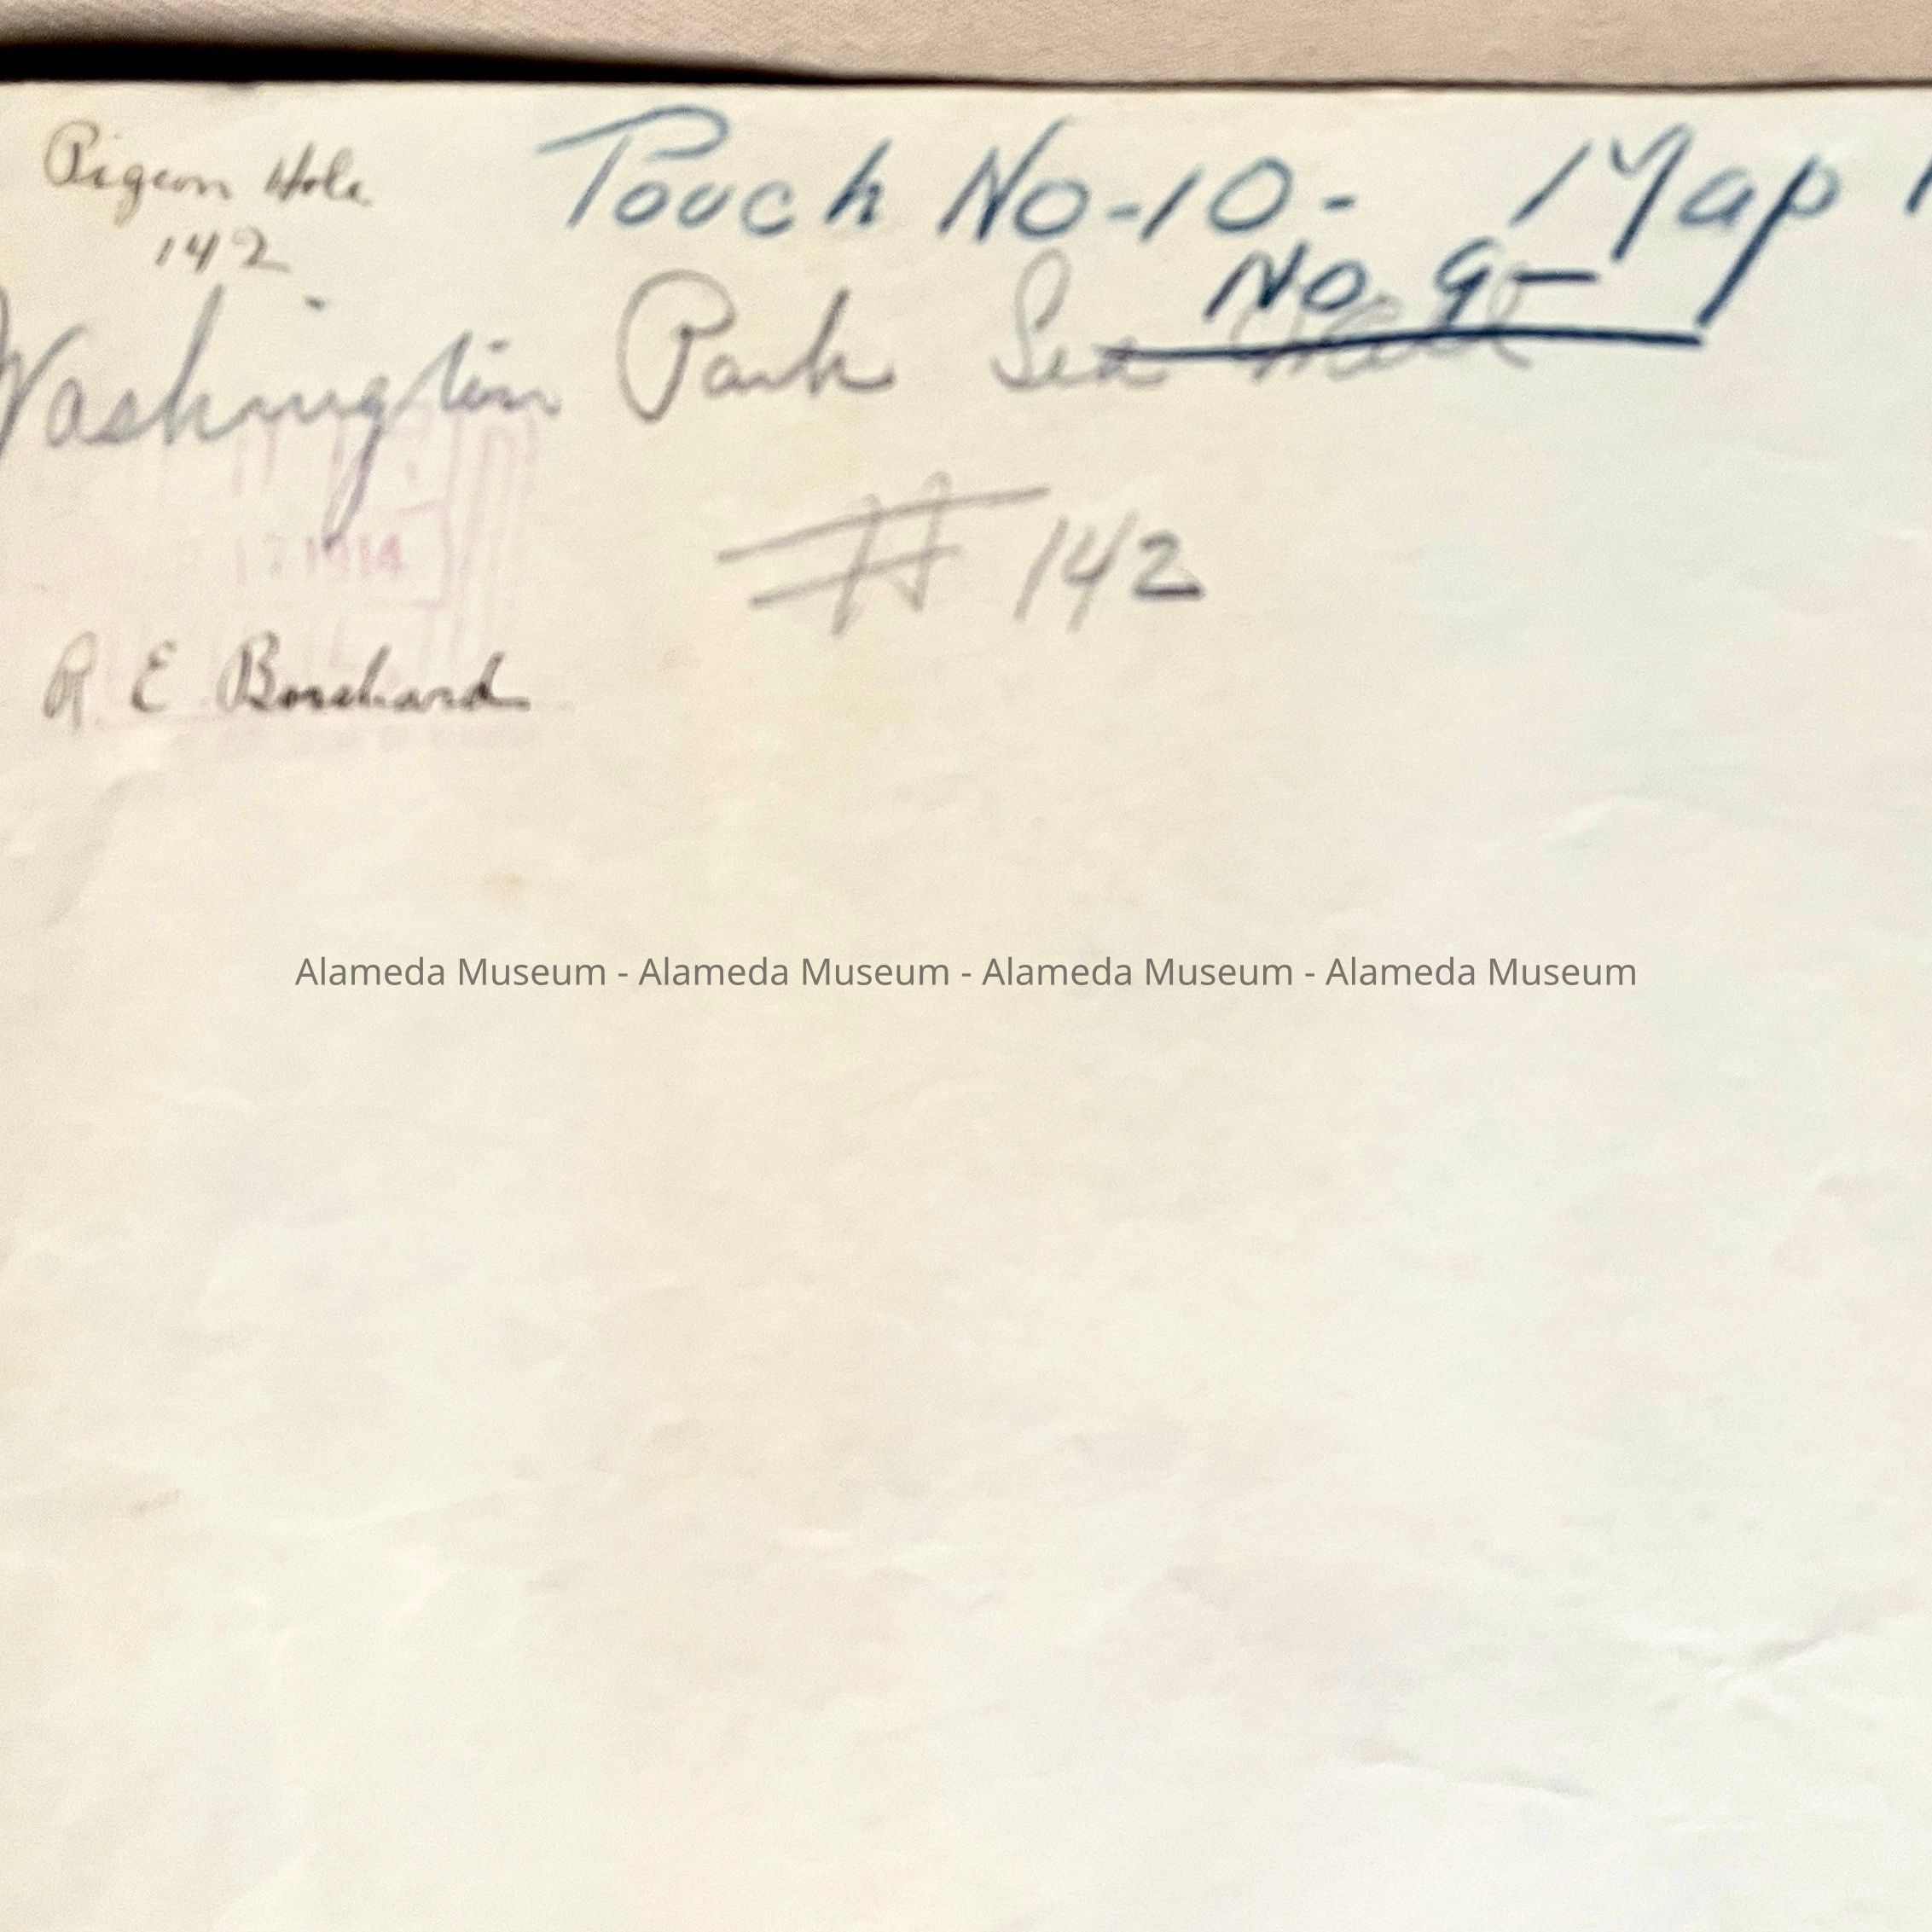 Pigeon Hole
142
Pouch No-10- Map
No. 9-
Washington Park Sea Wall
# 142
17 1914
R E Borchard
Alameda Museum - Alameda Museum - Alameda Museum - Alameda Museum